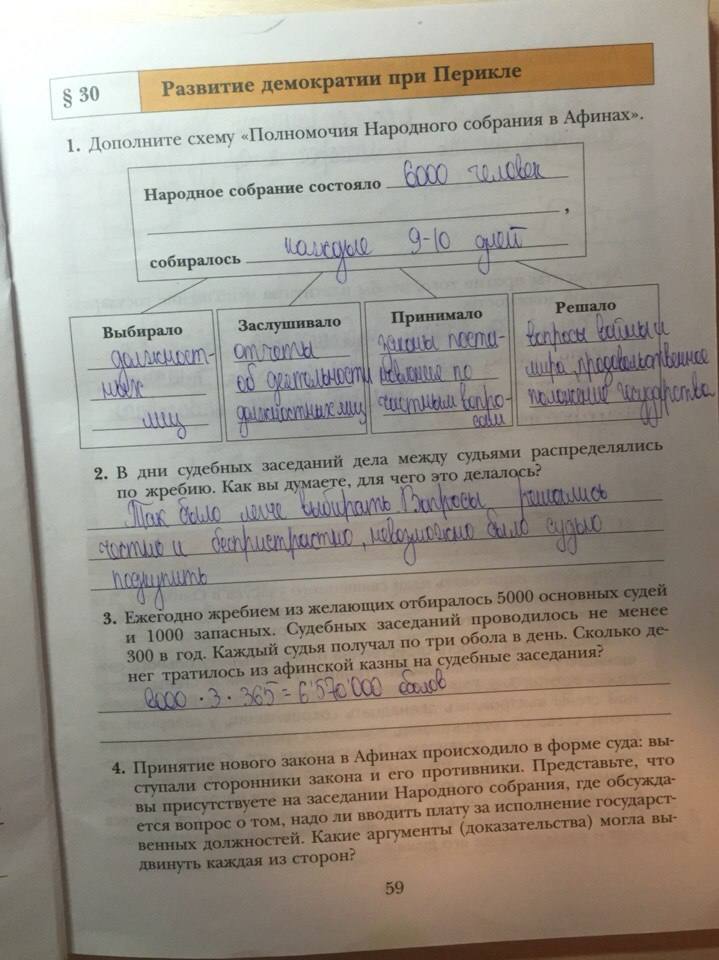 § 30
Развитие демократии при Перикле
1. Дополните схему «Полномочия Народного собрания в Афинах».
Народное собрание состояло 6000 человек
,
собиралось каждые 9-10 дней
Выбирало
должност-
ных
лиц
Заслушивало
отчеты
об деятельности
должностных лиц
Принимало
законы поста-
новление по
частным вопро-
сам
Решало
вопросы войны и
мира, продовольственное
положение государства
2. В дни судебных заседаний дела между судьями распределялись
по жребию. Как вы думаете, для чего это делалось?
Так было легче выбирать Вопросы решались
честно и беспристрастно, невозможно было судью
подкупить
3. Ежегодно жребием из желающих отбиралось 5000 основных судей
и 1000 запасных. Судебных заседаний проводилось не менее
300 в год. Каждый судья получал по три обола в день. Сколько де-
нег тратилось из афинской казны на судебные заседания?
6000 · 3 · 365 = 6'570'000 оболов
4. Принятие нового закона в Афинах происходило в форме суда: вы-
ступали сторонники закона и его противники. Представьте, что
вы присутствуете на заседании Народного собрания, где обсужда-
ется вопрос о том, надо ли вводить плату за исполнение государст-
венных должностей. Какие аргументы (доказательства) могла вы-
двинуть каждая из сторон?
59